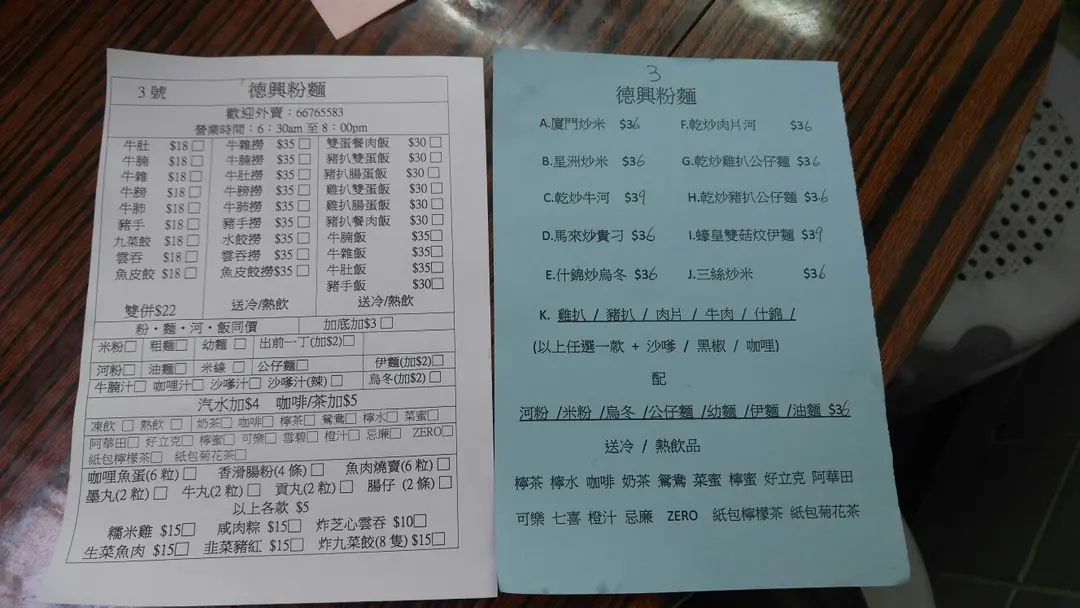 3 號 德興粉麵
歡迎外賣：66765583
營業時間：6：30am 至 8：00pm
牛肚 $18□ 牛雜撈 $35□ 雙蛋餐肉飯 $30□
牛腩 $18□ 牛腩撈 $35□ 豬扒雙蛋飯 $30□
牛雜 $18□ 牛肚撈 $35□ 豬扒腸蛋飯 $30□
牛膀 $18□ 牛膀撈 $35□ 雞扒雙蛋飯 $30□
牛肺 $18□ 牛肺撈 $35□ 雞扒腸蛋飯 $30□
豬手 $18□ 豬手撈 $35□ 豬扒餐肉飯 $30□
九菜餃 $18□ 水餃撈 $35□ 牛腩飯 $35□
雲吞 $18□ 雲吞撈 $35□ 牛雜飯 $35□
魚皮餃 $18□ 魚皮餃撈$35□ 牛肚飯 $35□
豬手飯 $30□
雙併$22 送冷/熱飲 送冷/熱飲
粉・麵・河・飯同價 加底加$3 □
米粉□ 粗麵□ 幼麵 □ 出前一丁(加$2)□
河粉□ 油麵□ 米線 □ 公仔麵□ 伊麵(加$2)□
牛腩汁□ 咖喱汁□ 沙嗲汁□ 沙嗲汁(辣) □ 烏冬(加$2)□
汽水加$4 咖啡/茶加$5
凍飲 □ 熱飲 □ 奶茶□ 咖啡□ 檸茶□ 鴛鴦□ 檸水□ 菜蜜□
阿華田□ 好立克□ 檸蜜□ 可樂□ 雪碧□ 橙汁□ 忌廉□ ZERO□
紙包檸檬茶□ 紙包菊花茶□
咖喱魚蛋(6 粒) □ 香滑腸粉(4 條) □ 魚肉燒賣(6 粒) □
墨丸(2 粒) □ 牛丸(2 粒) □ 貢丸(2 粒) □ 腸仔 (2 條) □
以上各款 $5
糯米雞 $15□ 咸肉粽 $15□ 炸芝心雲吞 $10□
生菜魚肉 $15□ 韭菜豬紅 $15□ 炸九菜餃(8 隻) $15□
3
德興粉麵
A.廈門炒米 $36 F.乾炒肉片河 $36
B.星洲炒米 $36 G.乾炒雞扒公仔麵 $36
C.乾炒牛河 $39 H.乾炒豬扒公仔麵 $36
D.馬來炒貴刁 $36 I.蠔皇雙菇炆伊麵 $39
E.什錦炒烏冬 $36 J.三絲炒米 $36
K. 雞扒 / 豬扒 / 肉片 / 牛肉 / 什錦 /
(以上任選一款 + 沙嗲 / 黑椒 / 咖喱)
配
河粉 /米粉 /烏冬 /公仔麵 /幼麵 /伊麵 /油麵 $36
送冷 / 熱飲品
檸茶 檸水 咖啡 奶茶 鴛鴦 菜蜜 檸蜜 好立克 阿華田
可樂 七喜 橙汁 忌廉 ZERO 紙包檸檬茶 紙包菊花茶